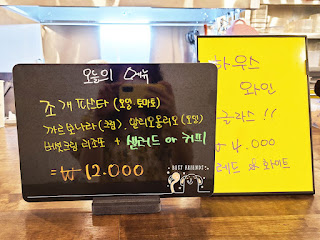 오늘의 메뉴
조개 파스타 (오일.토마토)
까르보나라 (크림). 알리오올리오 (오일)
버섯크림 리조또 + 샐러드 or 커피
= ₩ 12.000
BEST FRIENDS
하우스
와인
글라스!!
₩ 4.000
레드 & 화이트